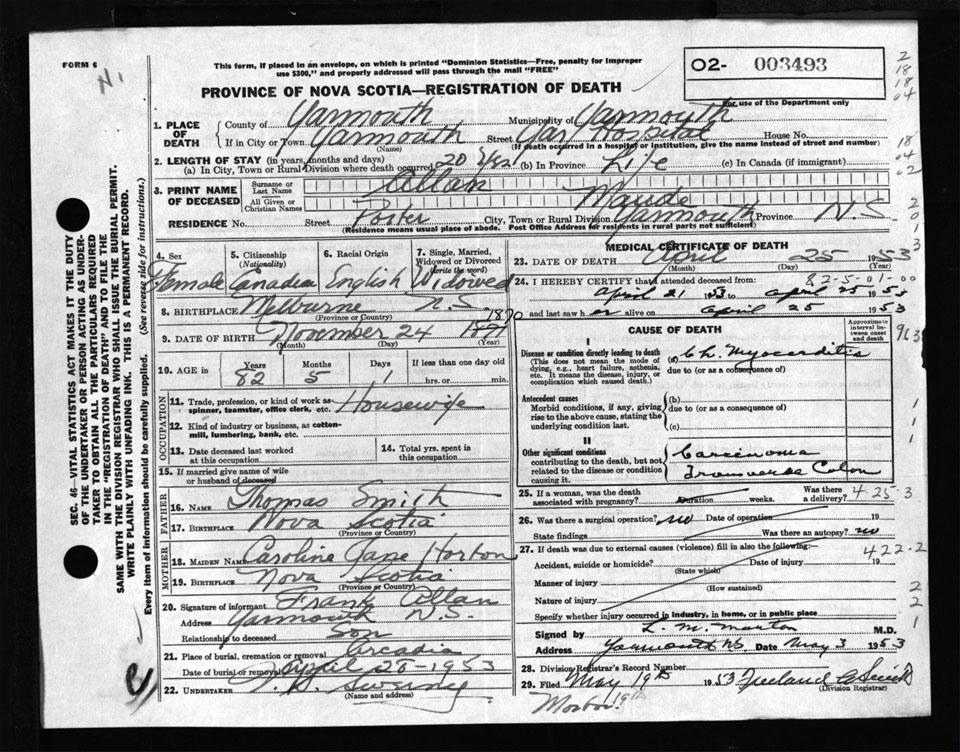 FORM 6
N.
This form, if placed in an envelope, on which is printed "Dominion Statistics—Free, penalty for improper
use $300," and properly addressed will pass through the mail "FREE"
O2- 003493
For use of the Department only
PROVINCE OF NOVA SCOTIA—REGISTRATION OF DEATH
1. PLACE OF DEATH
County of Yarmouth Municipality of Yarmouth
If in City or Town Yarmouth Street Yar. Hospital House No.
(Name) (If death occurred in a hospital or institution, give the name instead of street and number)
2. LENGTH OF STAY (in years, months and days)
(a) In City, Town or Rural Division where death occurred (b) In Province Life (c) In Canada (if immigrant)
3. PRINT NAME OF DECEASED
Surname or Last Name Allan
All Given or Christian Names Maude
RESIDENCE No. Street Porter City, Town or Rural Division Yarmouth Province N.S.
(Residence means usual place of abode. Post Office Address for residents in rural parts not sufficient)
4. Sex Female
5. Citizenship (Nationality) Canadian
6. Racial Origin English
7. Single, Married, Widowed or Divorced (write the word) Widowed
8. BIRTHPLACE Melbourne N.S.
(Province or Country)
9. DATE OF BIRTH November 24 1870
(Month) (Day) (Year)
10. AGE in Years 82 Months 5 Days 1 If less than one day old hrs. or min.
OCCUPATION
11. Trade, profession, or kind of work as— spinner, teamster, office clerk, etc. Housewife
12. Kind of industry or business, as cotton-mill, lumbering, bank, etc.
13. Date deceased last worked at this occupation
14. Total yrs. spent in this occupation
15. If married give name of wife or husband of deceased
FATHER
16. Name Thomas Smith
17. Birthplace Nova Scotia
(Province or Country)
MOTHER
18. MAIDEN NAME Caroline Jane Horton
19. Birthplace Nova Scotia
(Province or Country)
20. Signature of informant Frank Allan
Address Yarmouth N.S.
Relationship to deceased Son
21. Place of burial, cremation or removal Arcadia
Date of burial or removal April 28-1953
22. UNDERTAKER Sweeny
(Name and address)
MEDICAL CERTIFICATE OF DEATH
23. DATE OF DEATH April 25 1953
(Month) (Day) (Year)
24. I HEREBY CERTIFY that I attended deceased from
82-5-01-00
April 21 1953 to April 25 1953
and last saw her alive on April 25 1953
CAUSE OF DEATH
Approximate interval between onset and death
I
Disease or condition directly leading to death
(This does not mean the mode of dying, e.g., heart failure, asthenia, etc. It means the disease, injury, or complication which caused death.)
(a) Ch. Myocarditis
due to (or as a consequence of)
Antecedent causes
Morbid conditions, if any, giving rise to the above cause, stating the underlying condition last.
(b)
due to (or as a consequence of)
(c)
II
Other significant conditions
contributing to the death, but not related to the disease or condition causing it.
Carcinoma
Transverse Colon
25. If a woman, was the death associated with pregnancy? Duration weeks. Was there a delivery?
4 25 3
26. Was there a surgical operation? no Date of operation 19
State findings Was there an autopsy? no
27. If death was due to external causes (violence) fill in also the following:—
422-2
Accident, suicide or homicide? Date of injury 19
(State which)
Manner of injury
(How sustained)
Nature of injury
Specify whether injury occurred in industry, in home, or in public place
Signed by L. M. Morton M.D.
Address Yarmouth NS. Date May 3 1953
28. Division Registrar's Record Number
29. Filed May 19th 1953
(Division Registrar)
SEC. 46—VITAL STATISTICS ACT MAKES IT THE DUTY
OF THE UNDERTAKER OR PERSON ACTING AS UNDER-
TAKER TO OBTAIN ALL THE PARTICULARS REQUIRED
IN THE "REGISTRATION OF DEATH" AND TO FILE THE
SAME WITH THE DIVISION REGISTRAR WHO SHALL ISSUE THE BURIAL PERMIT.
WRITE PLAINLY WITH UNFADING INK. THIS IS A PERMANENT RECORD.
Every item of information should be carefully supplied. (See reverse side for instructions.)